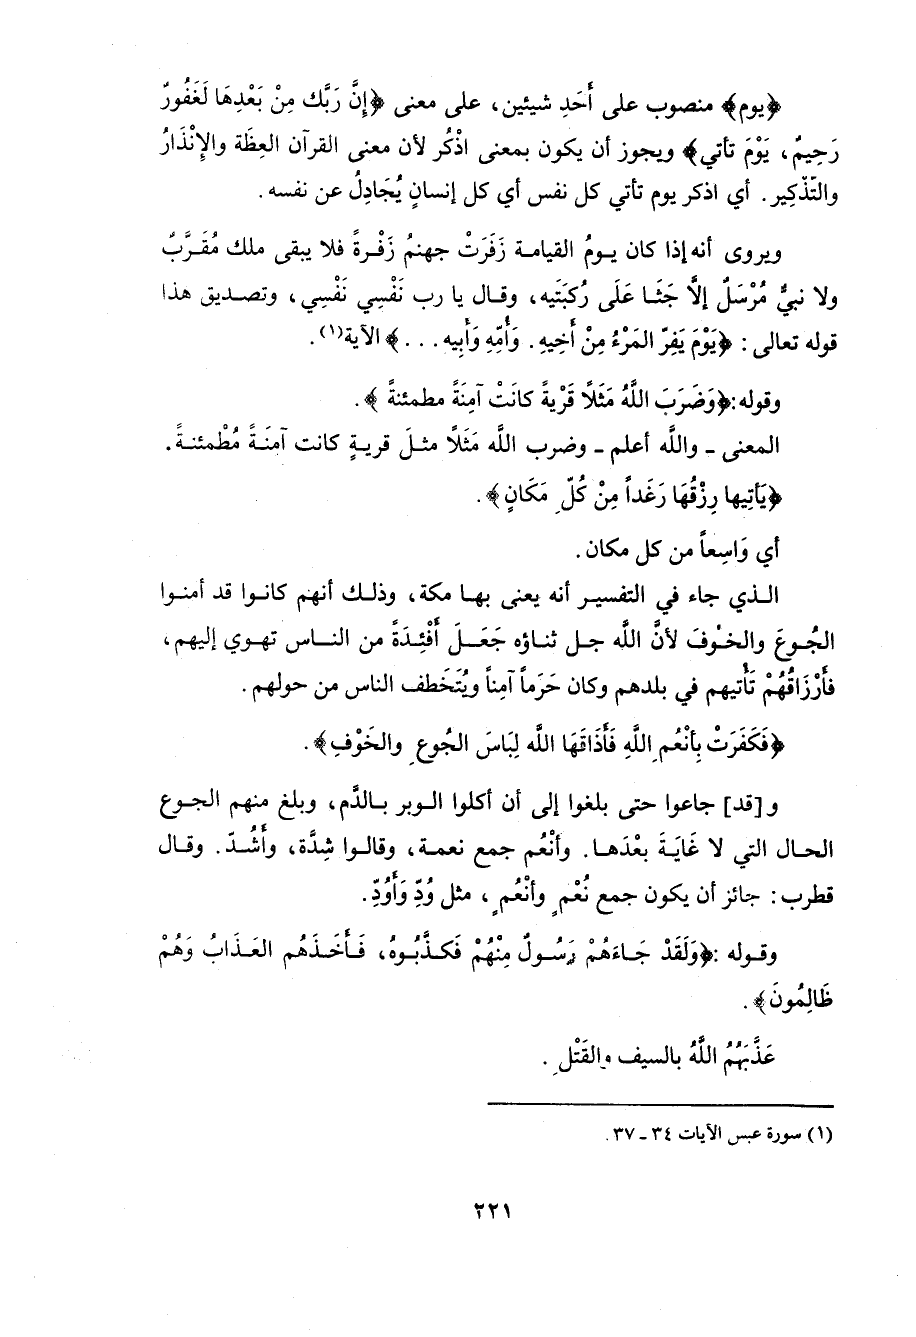 ﴿يوم﴾ منصوب على أَحَدِ شيئين، على معنى ﴿إِنَّ رَبَّك مِنْ بَعْدِهَا لَغَفُورٌ
رَحِيمٌ، يَوْمَ تأتي﴾ ويجوز أن يكون بمعنى اذْكُر لأن معنى القرآن العِظَة والإِنْذَارُ
والتّذْكِير. أي اذكر يوم تأتي كل نفس أي كل إنسانٍ يُجَادِلُ عن نفسه.
ويروى أنه إذا كان يومُ القيامة زَفَرَتْ جهنمُ زَفْرةً فلا يبقى ملك مُقَرَّبٌ
ولا نبيٌّ مُرْسَلٌ إلَّا جَثَا عَلَى رُكبَتَيه، وقال يا رب نَفْسِي نَفْسِي، وتصديق هذا
قوله تعالى: ﴿يَوْمَ يَفِرّ المَرْءُ مِنْ أَخِيهِ. وَأُمِّهِ وَأَبِيه...﴾ الآية(١).
وقوله:﴿وَضَرَبَ اللَّهُ مَثَلًا قَرْيةً كانَتْ آمِنَةً مطمئنةً﴾.
المعنى ـ واللَّه أعلم ـ وضرب اللَّه مَثَلًا مثلَ قريةٍ كانت آمنَةً مُطْمئنةً.
﴿يَأتِيها رِزْقُهَا رَغَداً مِنْ كُلّ مَكَانٍ﴾.
أي وَاسِعاً من كل مكان.
الذي جاء في التفسير أنه يعنى بها مكة، وذلك أنهم كانوا قد أمنوا
الجُوعَ والخوْفَ لأنَّ اللَّه جل ثناؤه جَعَلَ أفْئِدَةً من الناس تهوي إليهم،
فأَرْزَاقُهُمْ تَأْتيهم في بلدهم وكان حَرَماً آمناً ويُتَخَطف الناس من حولهم.
﴿فَكَفَرَتْ بِأَنْعُمِ اللَّهِ فَأَذَاقَهَا اللَّه لِبَاسَ الجُوعِ والخَوْفِ﴾.
و[قد] جاعوا حتى بلغوا إلى أن أكلوا الوبر بالدَّم، وبلغ منهم الجوع
الحال التي لا غَايَةَ بعْدَها. وأنْعُم جمع نعمة، وقالوا شِدَّة، وأَشُدّ. وقال
قطرب: جائز أن يكون جمع نُعْمٍ وأنْعُمٍ، مثل وُدٍّ وَأَوُدّ.
وقوله :﴿وَلَقَدْ جَاءَهُمْ رَسُولٌ مِنْهُمْ فَكذَّبُوهُ، فَأَخَذَهُم العَذَابُ وَهُمْ
ظَالِمُونَ﴾.
عَذَّبَهُمُ اللَّهُ بالسيف والقَتْلِ.
(١) سورة عبس الآيات ٣٤ ـ ٣٧.
٢٢١